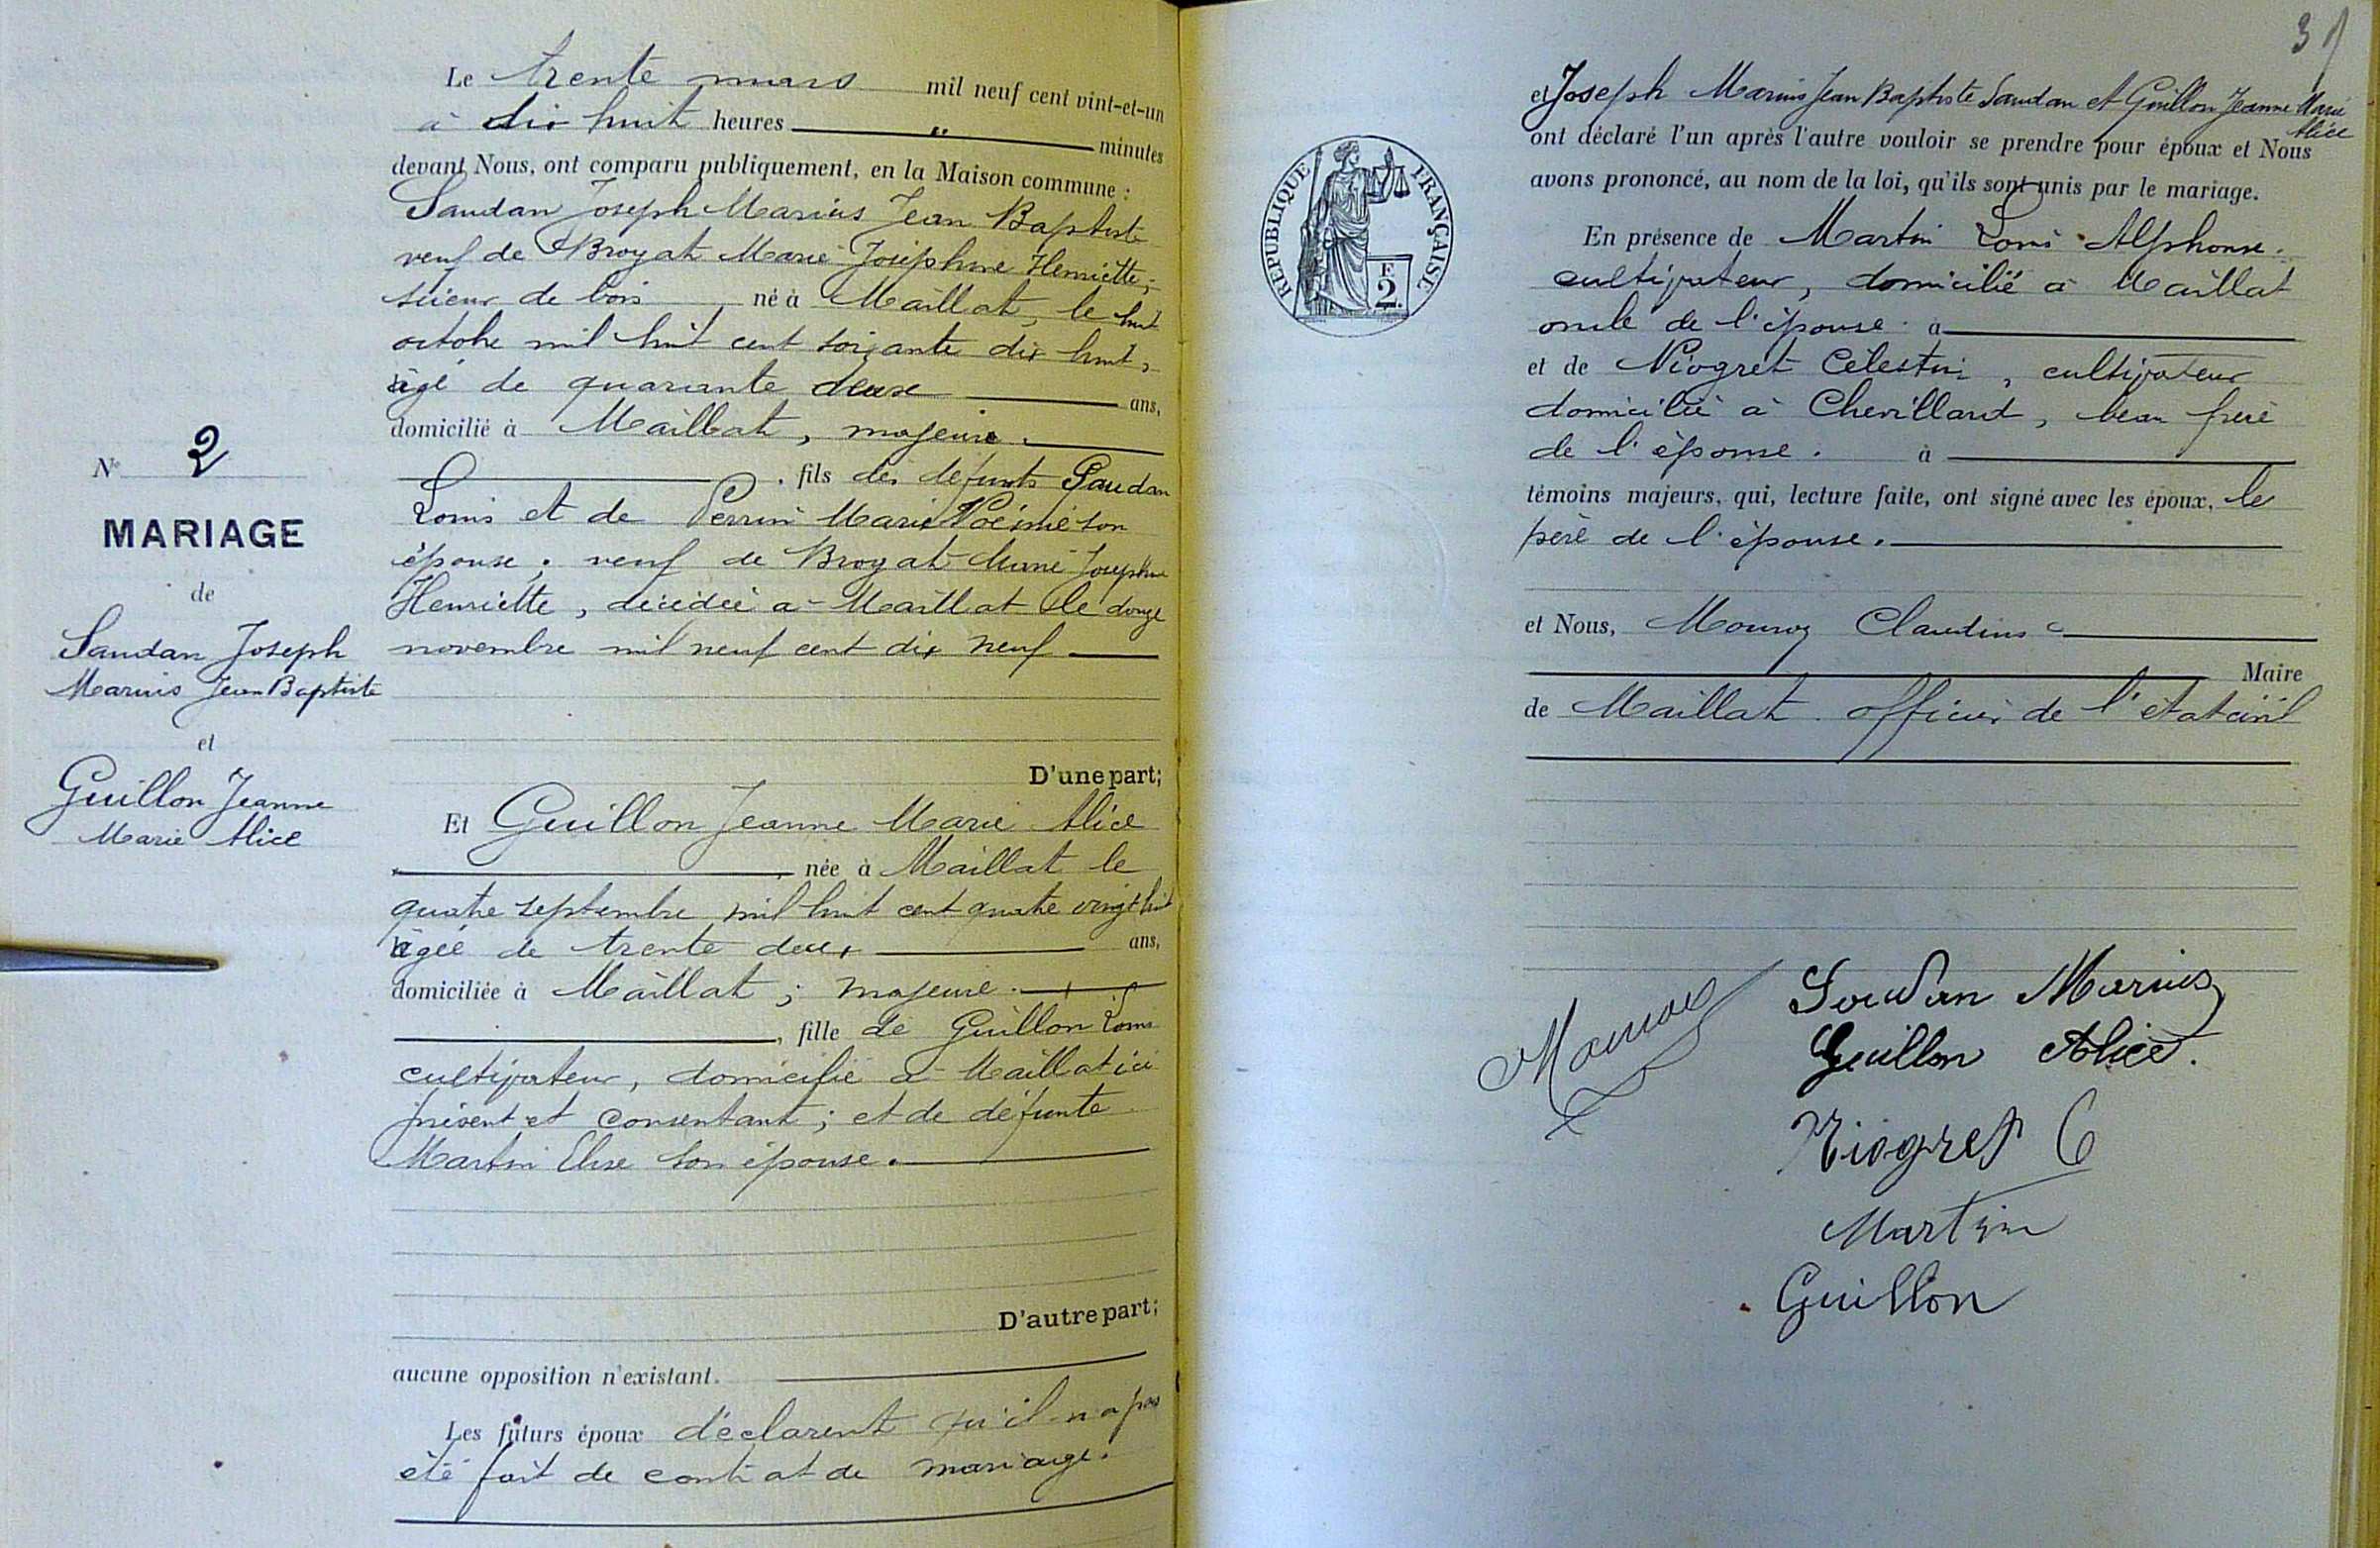 Le trente mars mil neuf cent vint-et-un
à dix huit heures " minutes
devant Nous, ont comparu publiquement, en la Maison commune :
Saudan Joseph Marius Jean Baptiste
veuf de Broyat Marie Joséphine Henriette ;
scieur de bois né à Maillat, le huit
octobre mil huit cent soixante dix huit,
âgé de quarante deux ans,
domicilié à Maillat, majeur.
, fils des défunts Saudan
Louis et de Perrin Marie Noémie son
épouse ; veuf de Broyat Marie Josephine
Henriette, décédée à Maillat le douze
novembre mil neuf cent dix neuf
D'une part;
Nº 2
MARIAGE
de
Saudan Joseph
Marius Jean Baptiste
et
Guillon Jeanne
Marie Alice
Et Guillon Jeanne Marie Alice
, née à Maillat le
quatre septembre mil huit cent quatre vingt huit
âgée de trente deux ans,
domiciliée à Maillat ; majeure.
, fille de Guillon Louis
cultivateur, domicilié à Maillat ici
présent et consentant ; et de défunte
Martin Elise son épouse.
D'autre part;
aucune opposition n'existant.
Les futurs époux déclarent qu'il n'a pas
été fait de contrat de mariage.
et Joseph Marius Jean Baptiste Saudan et Guillon Jeanne Marie
Alice
ont déclaré l'un après l'autre vouloir se prendre pour époux et Nous
avons prononcé, au nom de la loi, qu'ils sont unis par le mariage.
RÉPUBLIQUE FRANÇAISE
F
2.
En présence de Martin Louis Alphonse.
cultivateur, domicilié à Maillat
oncle de l'épouse. à
et de Niogret Célestin, cultivateur
domicilié à Chevillard, beau frère
de l'épouse. à
témoins majeurs, qui, lecture faite, ont signé avec les époux, le
père de l'épouse.
et Nous, Mouroz Claudius
Maire
de Maillat officier de l'état civil
Saudan Marius
Mouroz
Guillon Alice.
Niogret C
Martin
Guillon